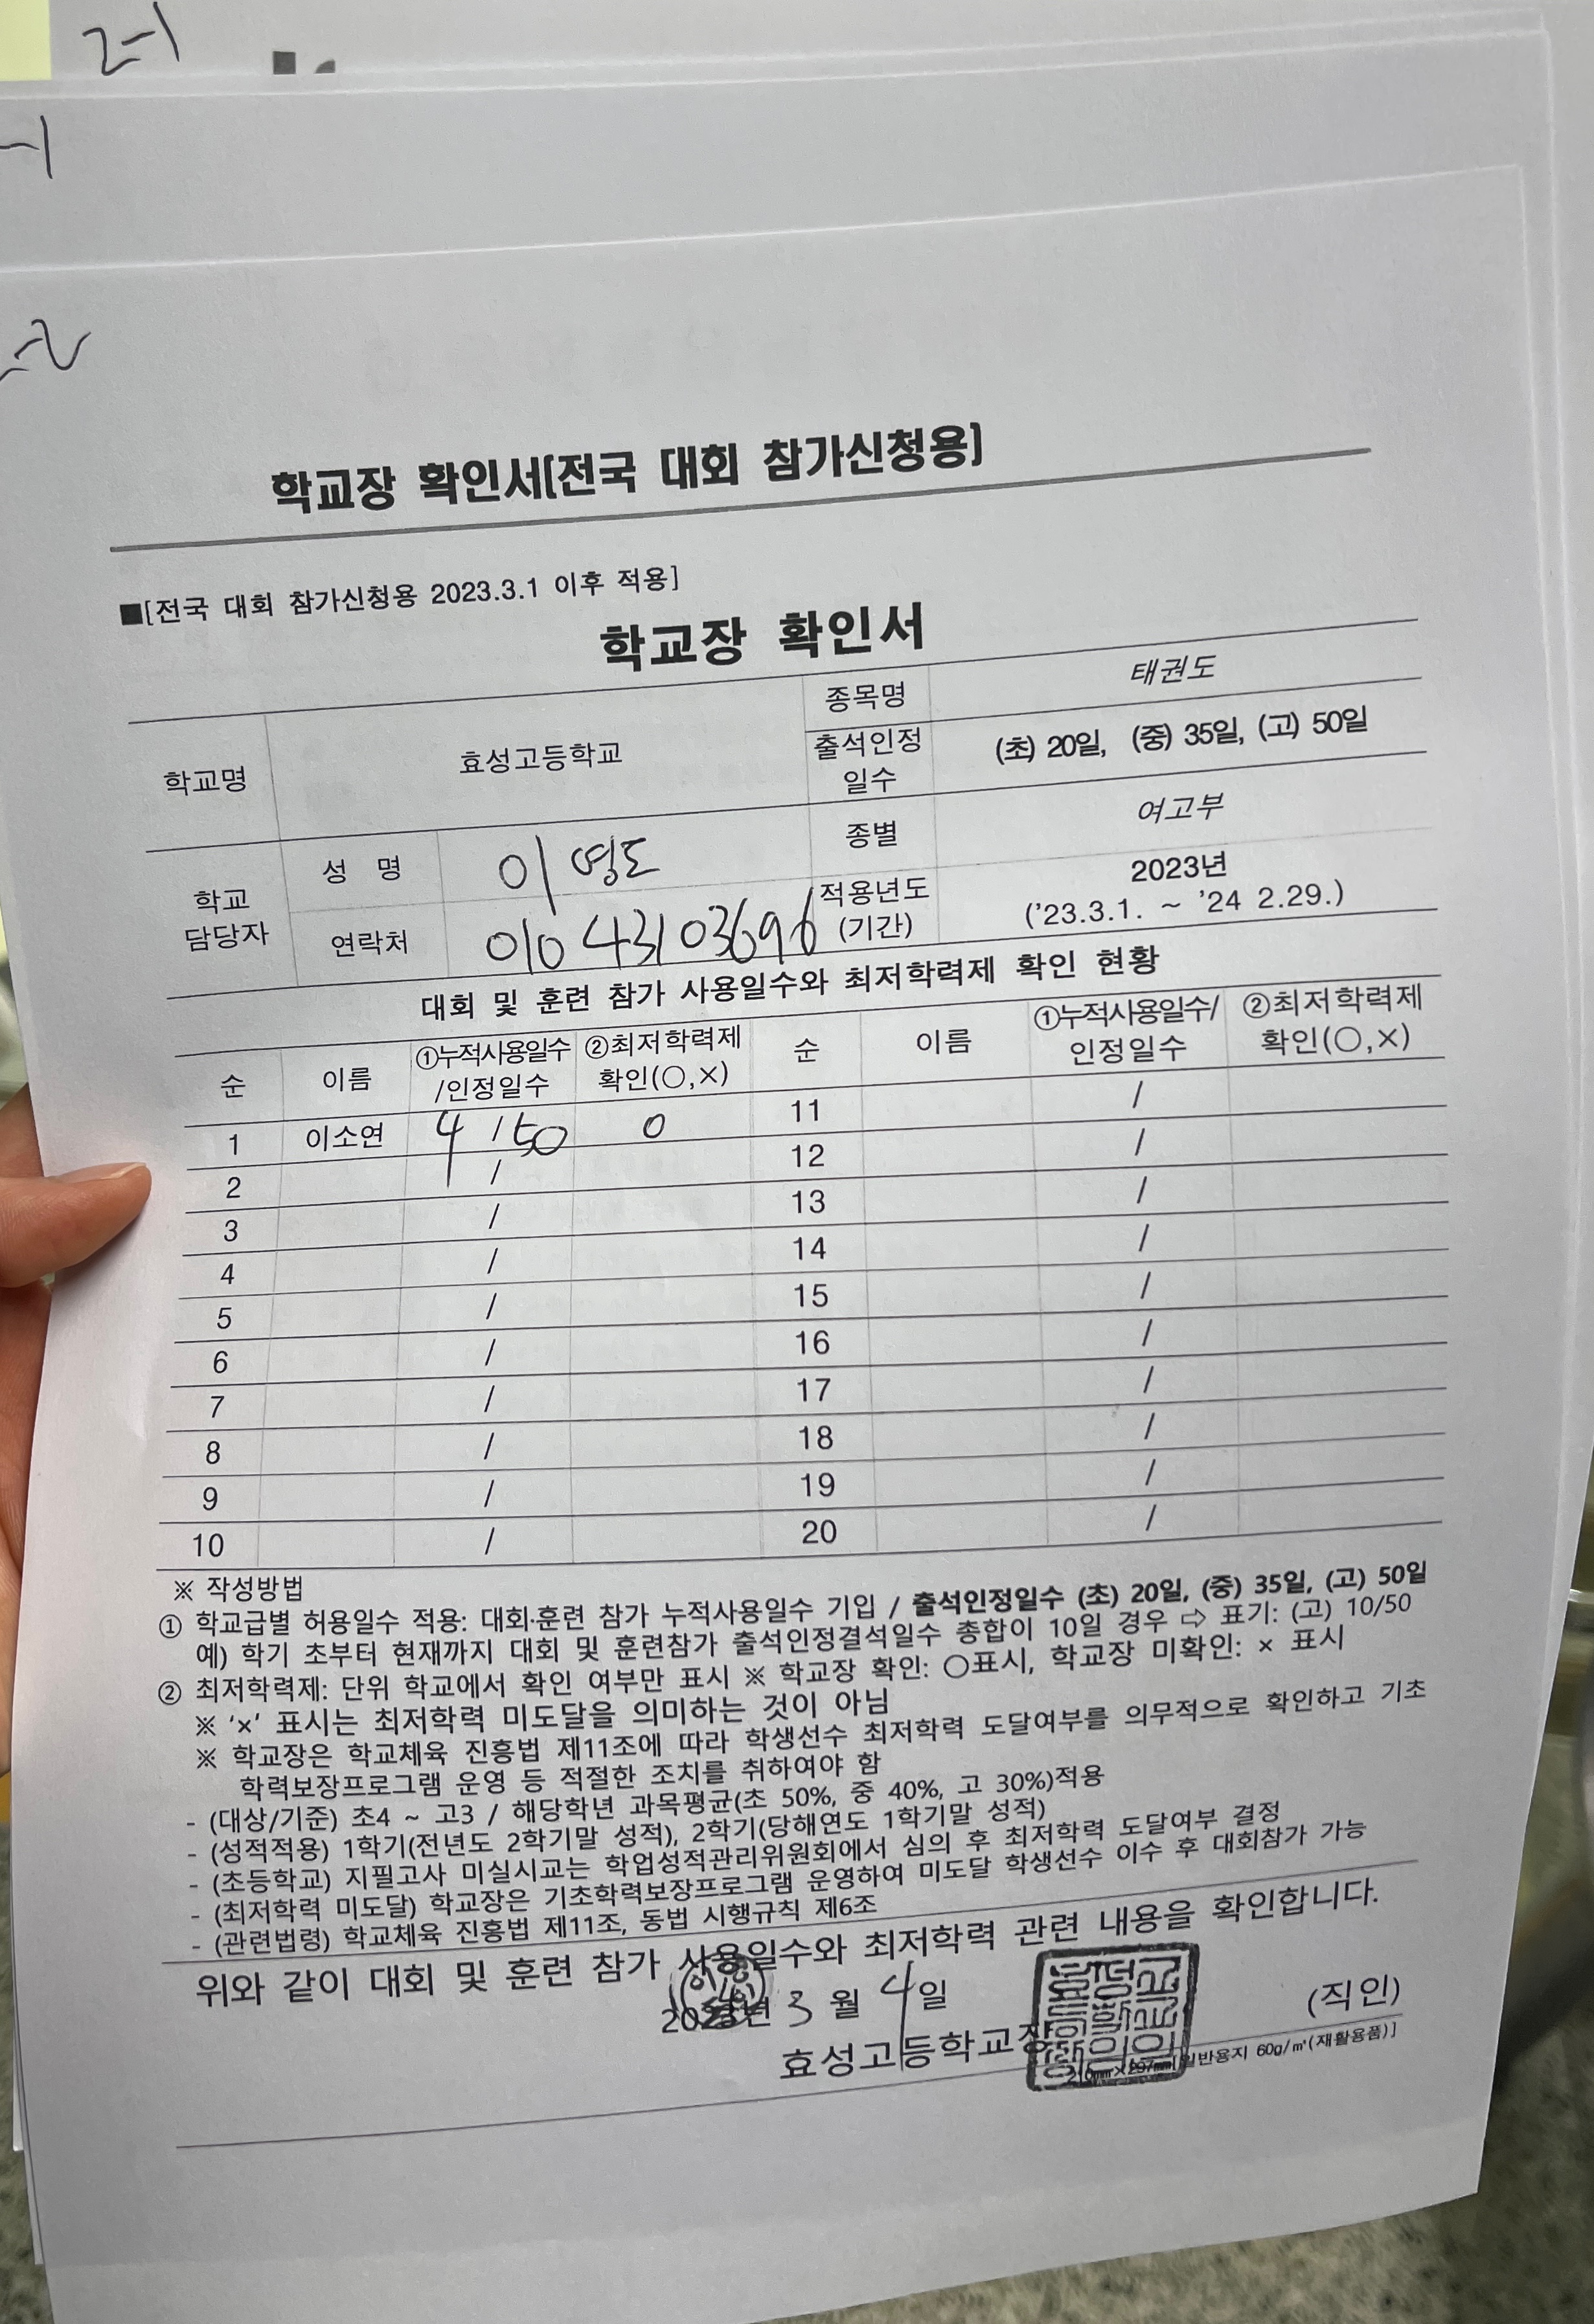 2-1
-1
-2
학교장 확인서[전국 대회 참가신청용]
■[전국 대회 참가신청용 2023.3.1 이후 적용]
학교장 확인서
학교명 효성고등학교 종목명 태권도
출석인정일수 (초) 20일, (중) 35일, (고) 50일
학교 담당자 성 명 이영도 종별 여고부
연락처 010 4310 3696 적용년도(기간) 2023년 ('23.3.1. ~ '24 2.29.)
대회 및 훈련 참가 사용일수와 최저학력제 확인 현황
순 이름 ①누적사용일수/인정일수 ②최저학력제 확인(○,×) 순 이름 ①누적사용일수/인정일수 ②최저학력제 확인(○,×)
1 이소연 4 / 50 0 11 /
2 / 12 /
3 / 13 /
4 / 14 /
5 / 15 /
6 / 16 /
7 / 17 /
8 / 18 /
9 / 19 /
10 / 20 /
※ 작성방법
① 학교급별 허용일수 적용: 대회·훈련 참가 누적사용일수 기입 / 출석인정일수 (초) 20일, (중) 35일, (고) 50일
예) 학기 초부터 현재까지 대회 및 훈련참가 출석인정결석일수 총합이 10일 경우 ⇨ 표기: (고) 10/50
② 최저학력제: 단위 학교에서 확인 여부만 표시 ※ 학교장 확인: ○표시, 학교장 미확인: × 표시
※ '×' 표시는 최저학력 미도달을 의미하는 것이 아님
※ 학교장은 학교체육 진흥법 제11조에 따라 학생선수 최저학력 도달여부를 의무적으로 확인하고 기초
학력보장프로그램 운영 등 적절한 조치를 취하여야 함
- (대상/기준) 초4 ~ 고3 / 해당학년 과목평균(초 50%, 중 40%, 고 30%)적용
- (성적적용) 1학기(전년도 2학기말 성적), 2학기(당해연도 1학기말 성적)
- (초등학교) 지필고사 미실시교는 학업성적관리위원회에서 심의 후 최저학력 도달여부 결정
- (최저학력 미도달) 학교장은 기초학력보장프로그램 운영하여 미도달 학생선수 이수 후 대회참가 가능
- (관련법령) 학교체육 진흥법 제11조, 동법 시행규칙 제6조
위와 같이 대회 및 훈련 참가 사용일수와 최저학력 관련 내용을 확인합니다.
2023년 3 월 4 일
효성고등학교장 (직인)
210㎜×297㎜[일반용지 60g/㎡(재활용품)]